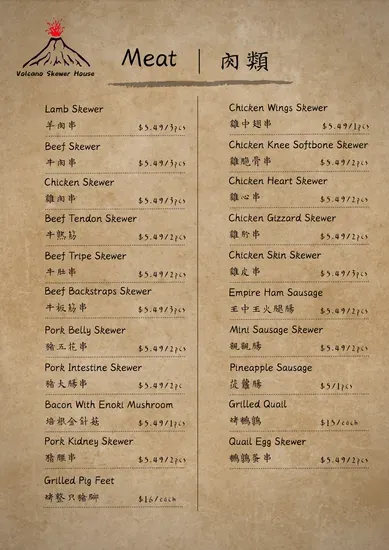 Volcano Skewer House
Meat | 肉類
Lamb Skewer
羊肉串 $5.49/3pcs
Beef Skewer
牛肉串 $5.49/3pcs
Chicken Skewer
雞肉串 $5.49/3pcs
Beef Tendon Skewer
牛熟筋 $5.49/2pcs
Beef Tripe Skewer
牛肚串 $5.49/2pcs
Beef Backstraps Skewer
牛板筋串 $5.49/3pcs
Pork Belly Skewer
豬五花串 $5.49/2pcs
Pork Intestine Skewer
豬大腸串 $5.49/2pc
Bacon With Enoki Mushroom
培根金針菇 $5.49/1pcs
Pork Kidney Skewer
豬腰串 $5.49/2pcs
Grilled Pig Feet
烤整只豬腳 $16/each
Chicken Wings Skewer
雞中翅串 $5.49/1pcs
Chicken Knee Softbone Skewer
雞脆骨串 $5.49/2pcs
Chicken Heart Skewer
雞心串 $5.49/2pcs
Chicken Gizzard Skewer
雞胗串 $5.49/2pcs
Chicken Skin Skewer
雞皮串 $5.49/3pcs
Empire Ham Sausage
王中王火腿腸 $5.49/2pcs
Mini Sausage Skewer
親親腸 $5.49/2pcs
Pineapple Sausage
菠蘿腸 $5/1pcs
Grilled Quail
烤鵪鶉 $15/each
Quail Egg Skewer
鵪鶉蛋串 $5.49/2pcs